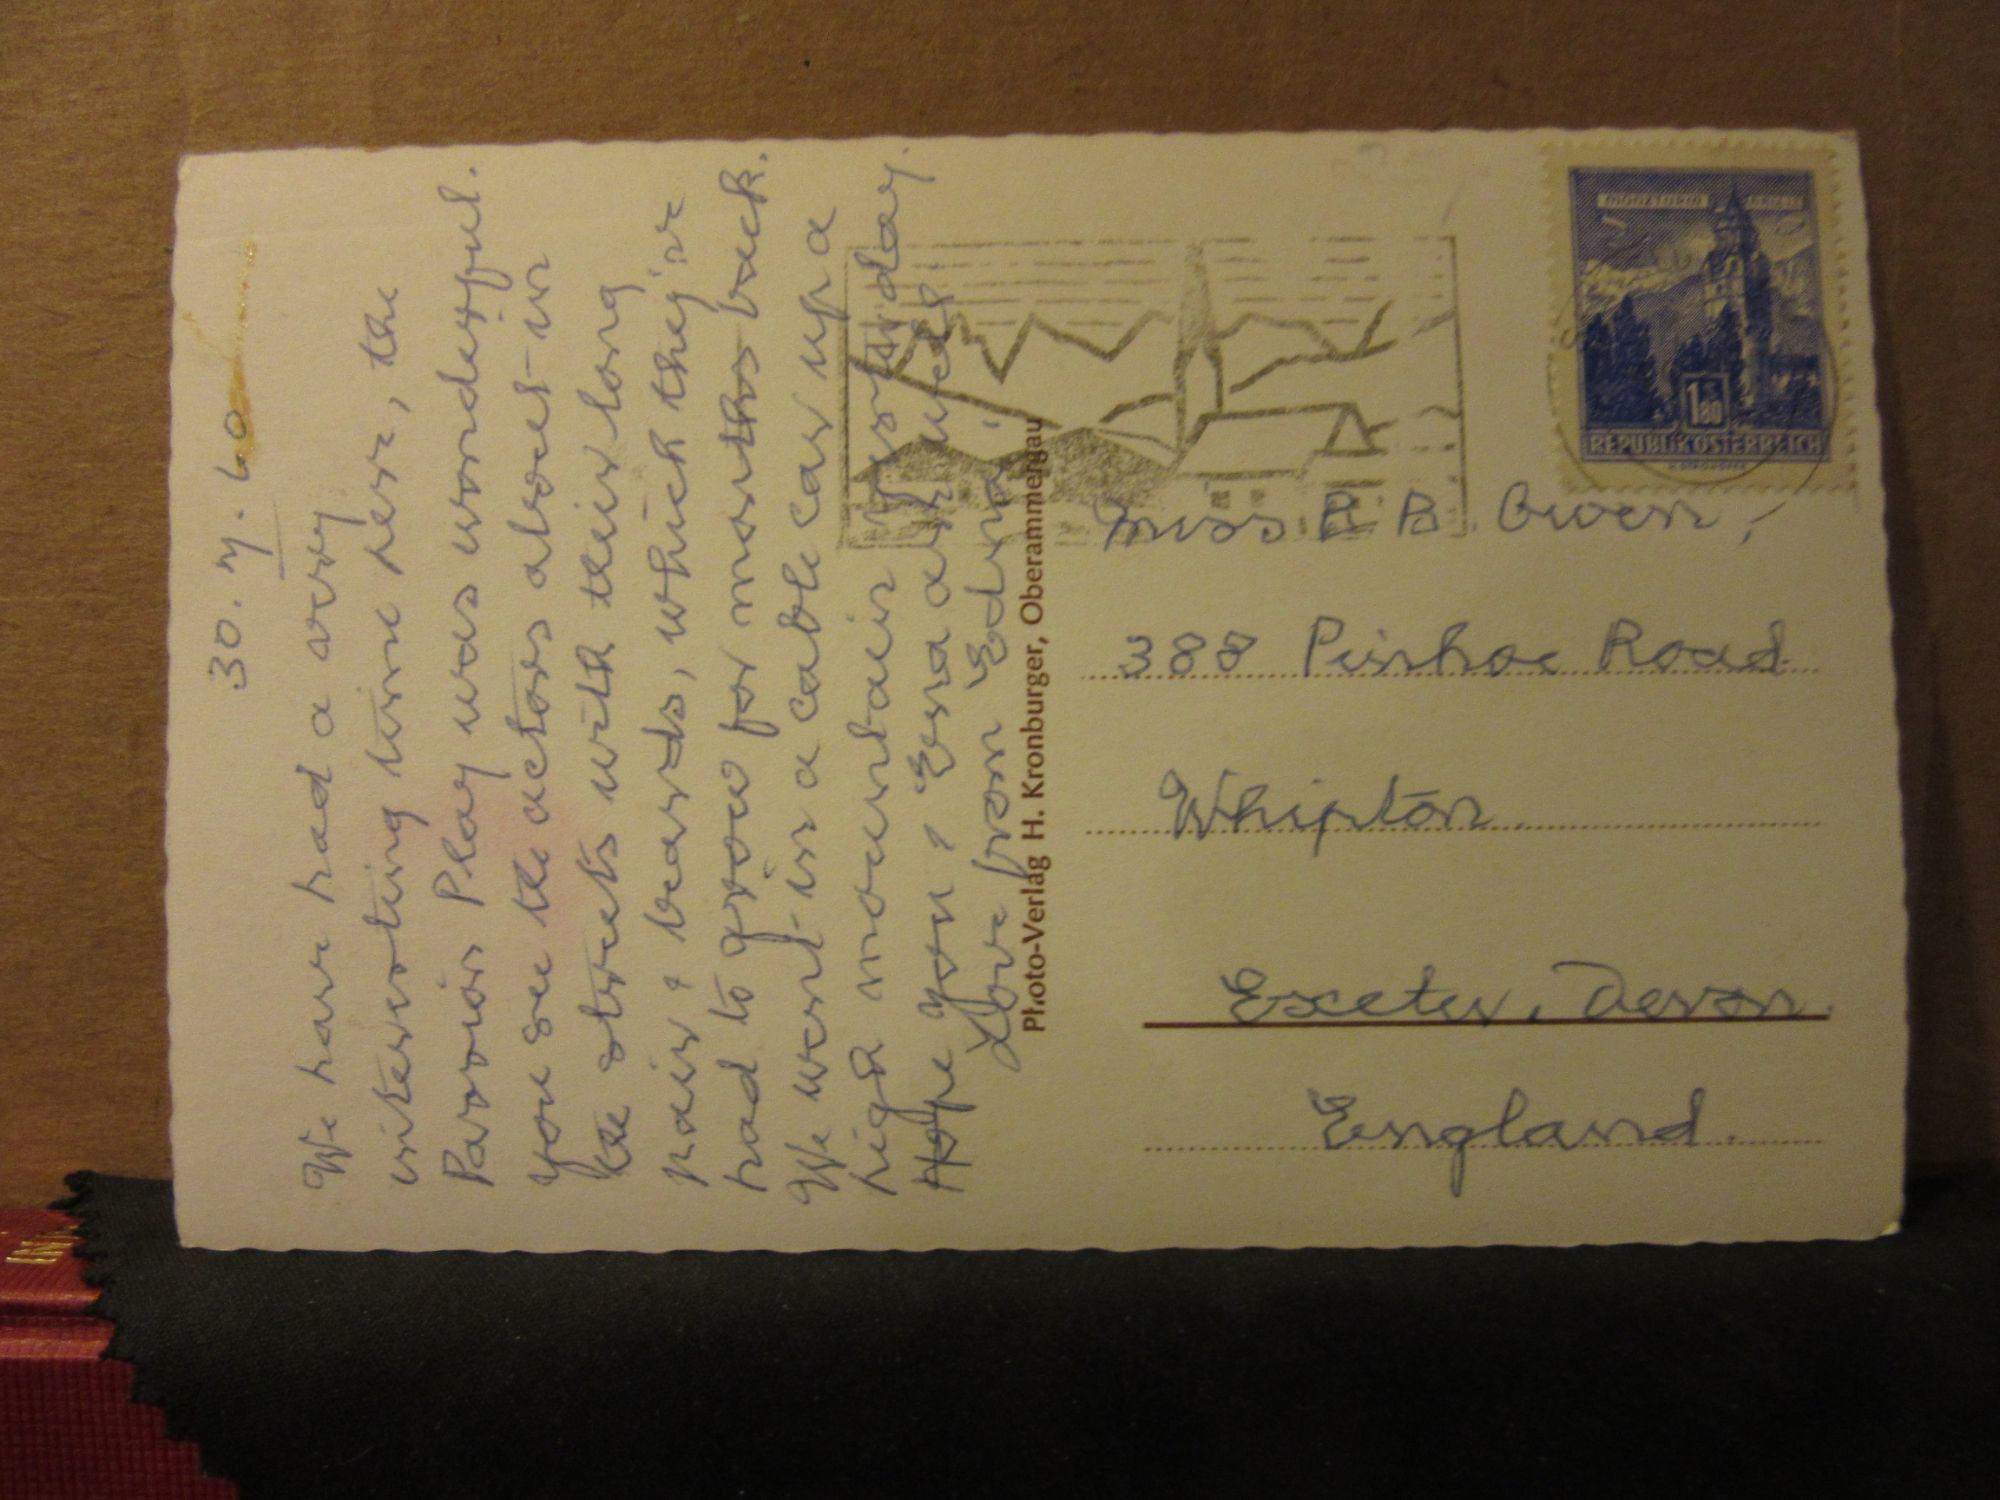 30.7.60
We have had a very
interesting time here, the
Passion Play was wonderful.
you see the actors about in
the streets with their long
hair & beards, which they've
had to grow for months back.
We went in a cable car up a
high mountain yesterday.
Hope you & Erna are well
Love from Edna.
Photo-Verlag H. Kronburger, Oberammergau
REPUBLIK ÖSTERREICH
1.80
Miss B B. Owen,
388 Pinhoe Road
Whipton
Exeter, Devon.
England.